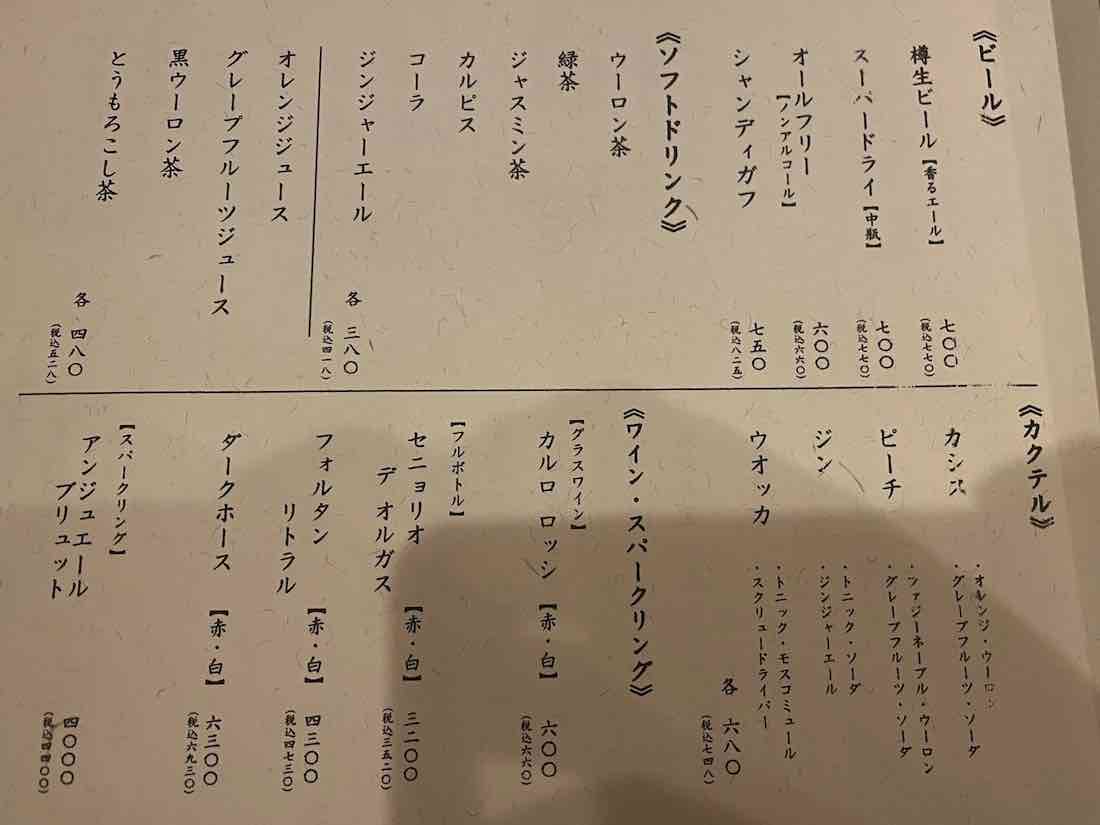 《ビール》
樽生ビール【香るエール】 七〇〇
(税込七七〇)
スーパードライ【中瓶】 七〇〇
(税込七七〇)
オールフリー 六〇〇
【ノンアルコール】
(税込六六〇)
シャンディガフ 七五〇
(税込八二五)
《ソフトドリンク》
ウーロン茶
緑茶
ジャスミン茶
カルピス
コーラ
ジンジャーエール 各 三八〇
(税込四一八)
オレンジジュース
グレープフルーツジュース
黒ウーロン茶
とうもろこし茶 各 四八〇
(税込五二八)
《カクテル》
カシス
・オレンジ・ウーロン
・グレープフルーツ・ソーダ
ピーチ
・ファジーネーブル・ウーロン
・グレープフルーツ・ソーダ
ジン
・トニック・ソーダ
・ジンジャーエール
ウオッカ
・トニック・モスコミュール
・スクリュードライバー
各 六八〇
(税込七四八)
《ワイン・スパークリング》
【グラスワイン】
カルロ ロッシ【赤・白】 六〇〇
(税込六六〇)
【フルボトル】
セニョリオ
デ オルガス【赤・白】 三二〇〇
(税込三五二〇)
フォルタン
リトラル【赤・白】 四三〇〇
(税込四七三〇)
ダークホース【赤・白】 六三〇〇
(税込六九三〇)
【スパークリング】
アンジュエール
ブリュット 四〇〇〇
(税込四四〇〇)